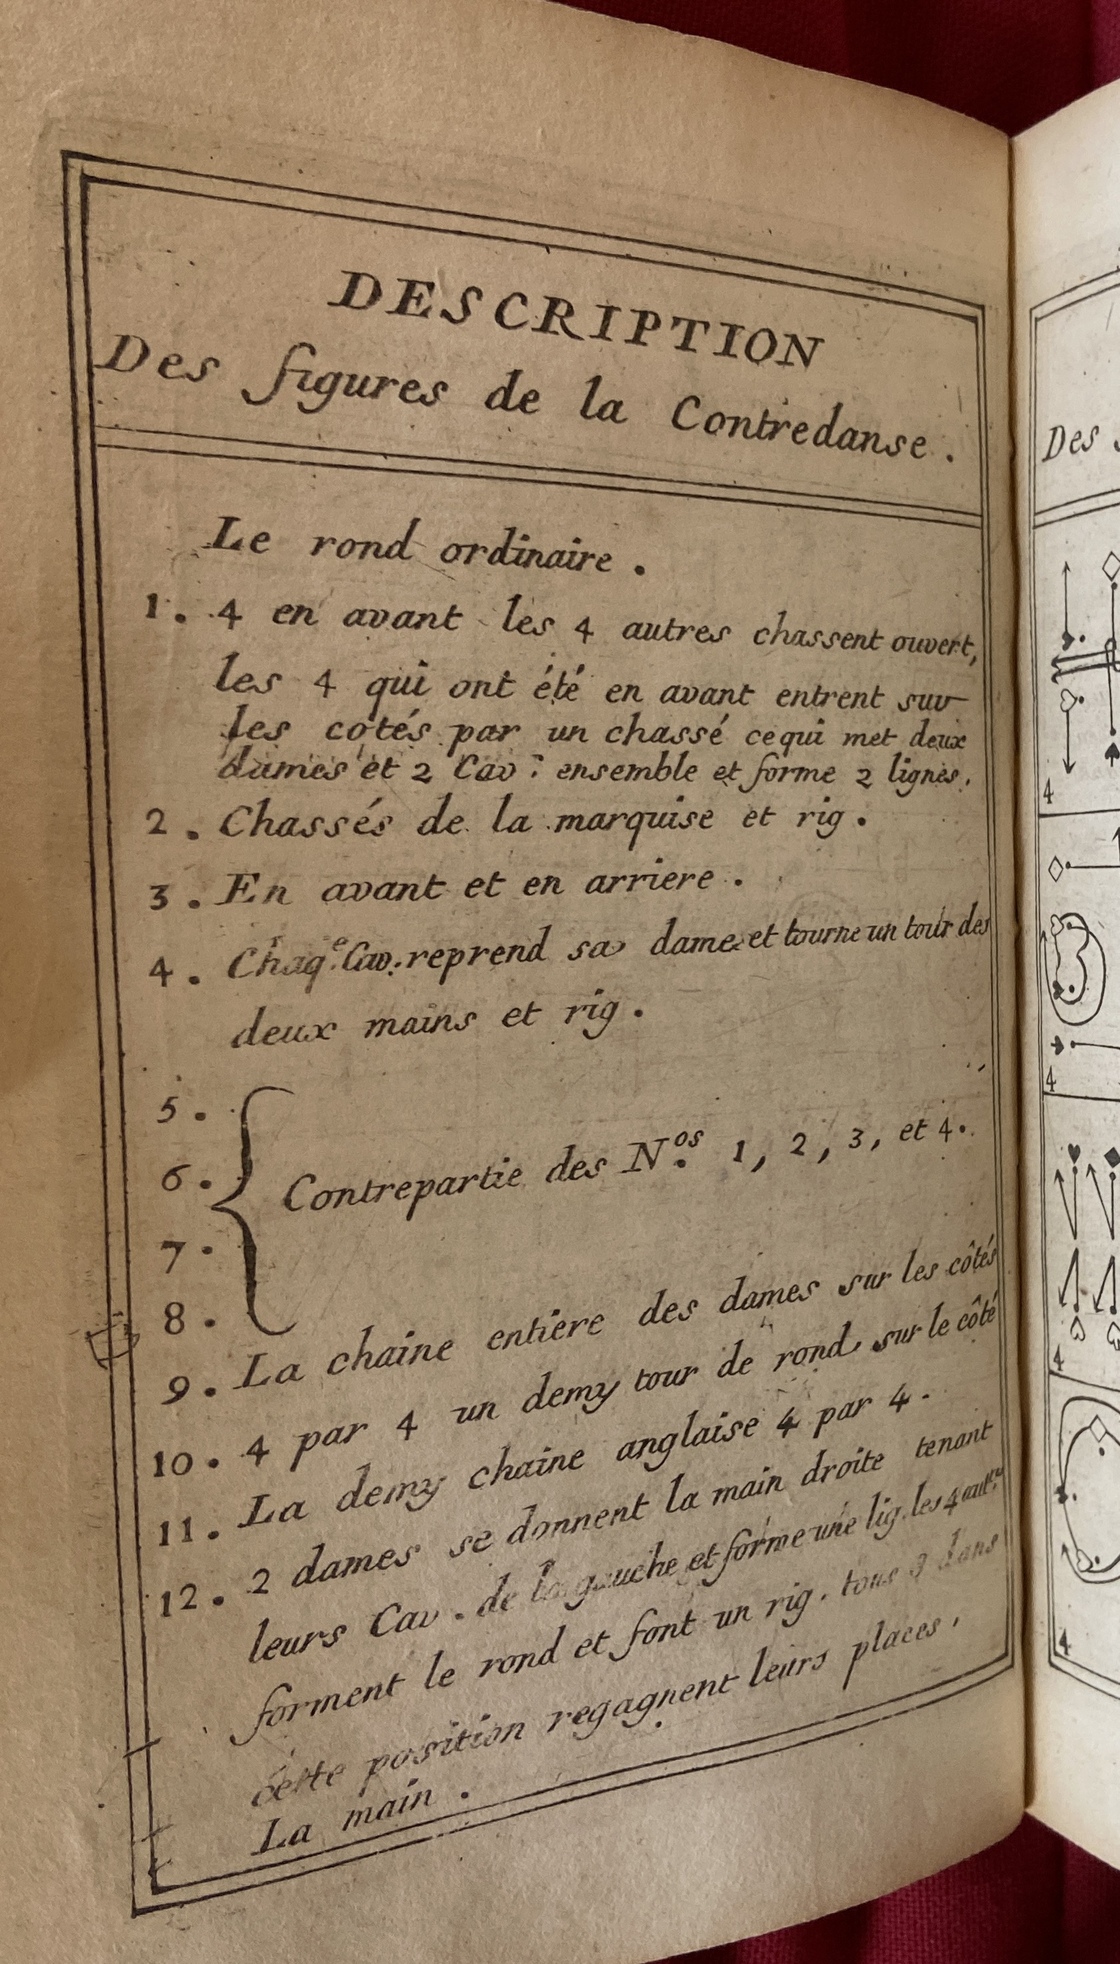 DESCRIPTION
Des figures de la Contredanse.
Le rond ordinaire.
1. 4 en avant les 4 autres chassent ouvert,
les 4 qui ont été en avant entrent sur
les côtés par un chassé ce qui met deux
dames et 2 Cav. ensemble et forme 2 lignes.
2. Chassés de la marquise et rig.
3. En avant et en arriere.
4. Chaq.e Cav. reprend sa dame et tourne un tour des
deux mains et rig.
5.
6.
7.
8.
Contrepartie des N.os 1, 2, 3, et 4.
9. La chaine entière des dames sur les côtés
10. 4 par 4 un demy tour de rond sur le côté
11. La demy chaine anglaise 4 par 4.
12. 2 dames se donnent la main droite tenant
leurs Cav. de la gauche et forme une lig. les 4 autres
forment le rond et font un rig. tous dans
cette position regagnent leurs places.
La main.
Des
4
4
4
4